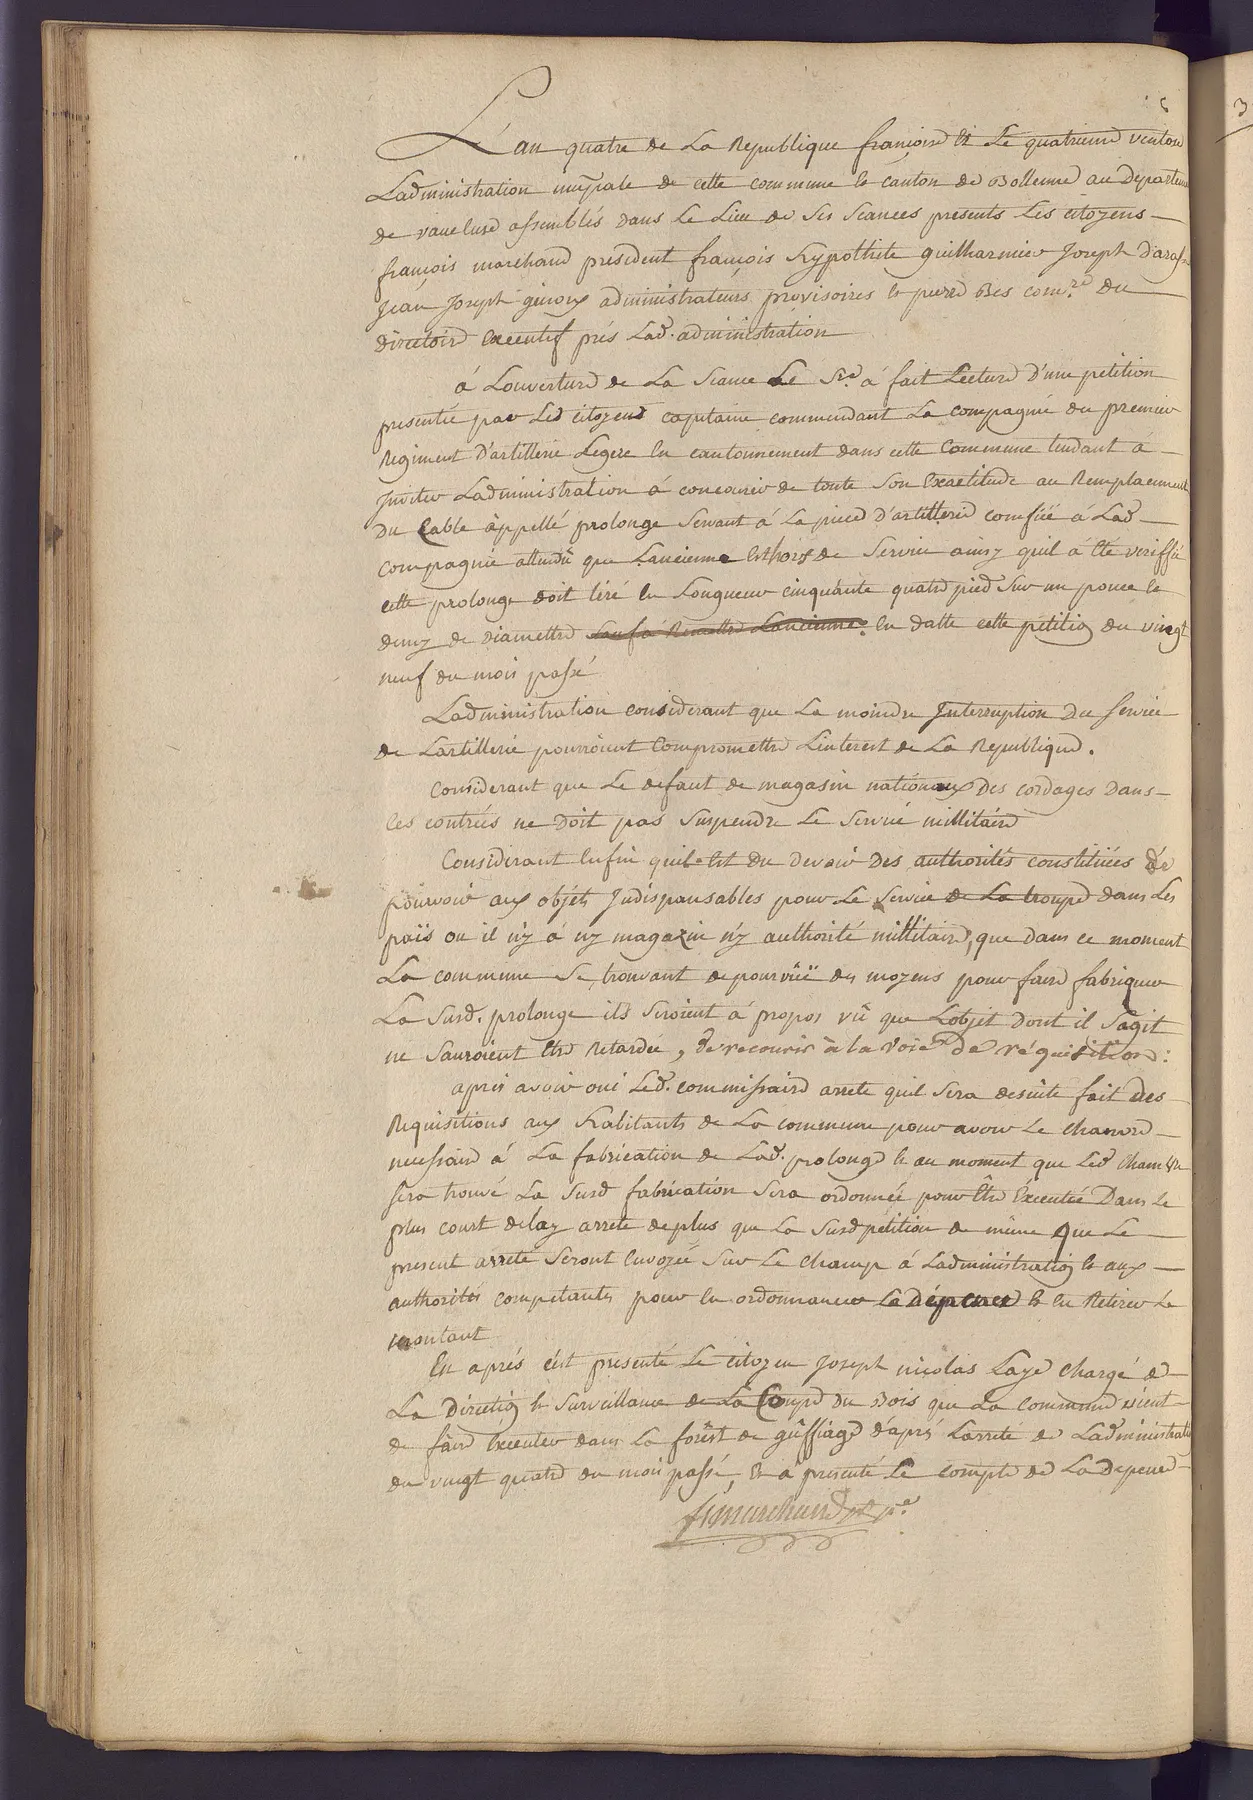 L'an quatre de La Republique françoise et Le quatrieme ventose
Ladministration mũpale de cette commune & canton de Bollenne au Departem
de vaucluse assemblés dans Le Lieu de Ses Seances presents Les citoyens
françois marchand president françois hypothite guilharmier Joseph
Jean Joseph giroux administrateurs provisoires & pierre Bes com.re du
directoire executif prés Lad. administration
á Louverture de La Seance Le S.re á fait Lecture D'une petition
presentée par Led citoyens capitaine commendant La compagnie du premier
Regiment D'artillerie Legere En cantonnement dans cette Commune tendant á
Inviter Ladministration á concourir de toute Son Exactitude au Remplacement
Du Cable àppellé prolonge Servant á La piece d'artillerie comfiée á Lad
compagnie attendû que Lancienne Est hors de Service ainsy quil á été veriffié
cette prolonge doit têre En Longueur cinquante quatre pied Sur un pouce &
demy de diamettre Sauf á Remettre Lancienne. En datte cette petitioñ du vingt
neuf du mois passé
Ladministration considerant que La moindre Interruption Du Service
de Lartillerie pourroient Comprometttre Linterest de La Republique.
Considerant que Le defaut de magasin nationaux Des cordages Dans
Ces contreés ne Doit pas Suspendre Le Service millitaire
Considerant Enfin quil Est du devoir Des authorités constituées de
pourvoir aux objéts Indispansables pour Le Service de La troupe dans Les
païs ou il n'y á ny magazin n'y authorité millitaire, que dans ce moment
La commune Se trouvant depourvûë des moyens pour faire fabriquer
La Susd. prolonge ils Seroient á propos vû que Lobjet Dont il S'agit
ne Sauroient Etre Retardée, de recourir à la voie de réquisition:
aprés avoir oui Led. commissaire arrete quil Sera desuite fait Des
Requisitions aux habitants de La commune pour avoir Le chanvre
necessaire á La fabrication de Lad. prolonge & au moment que Led chanvre
Sera trouvé La Susd fabrication Sera ordonnée pour Être Éxecutée Dans Le
plus court delay arrete deplus que La Susd petition de même que Le
present arreté Seront Envoyée Sur Le champ á Ladministratioñ & aux
authorités competantes pour En ordonnancer La dépense & En Retirer Le
montant
En aprés c'est presenté Le citoyen Joseph nicolas Laye chargé de
La Directioñ & Surveillance de La Coupe Du Bois que La Commune vient
de faire Executer dans La forêst de d'apré Larreté de Ladministratioñ
du vingt quatre du mois passé, Et á presenté Le compte de La depence
f. marchand